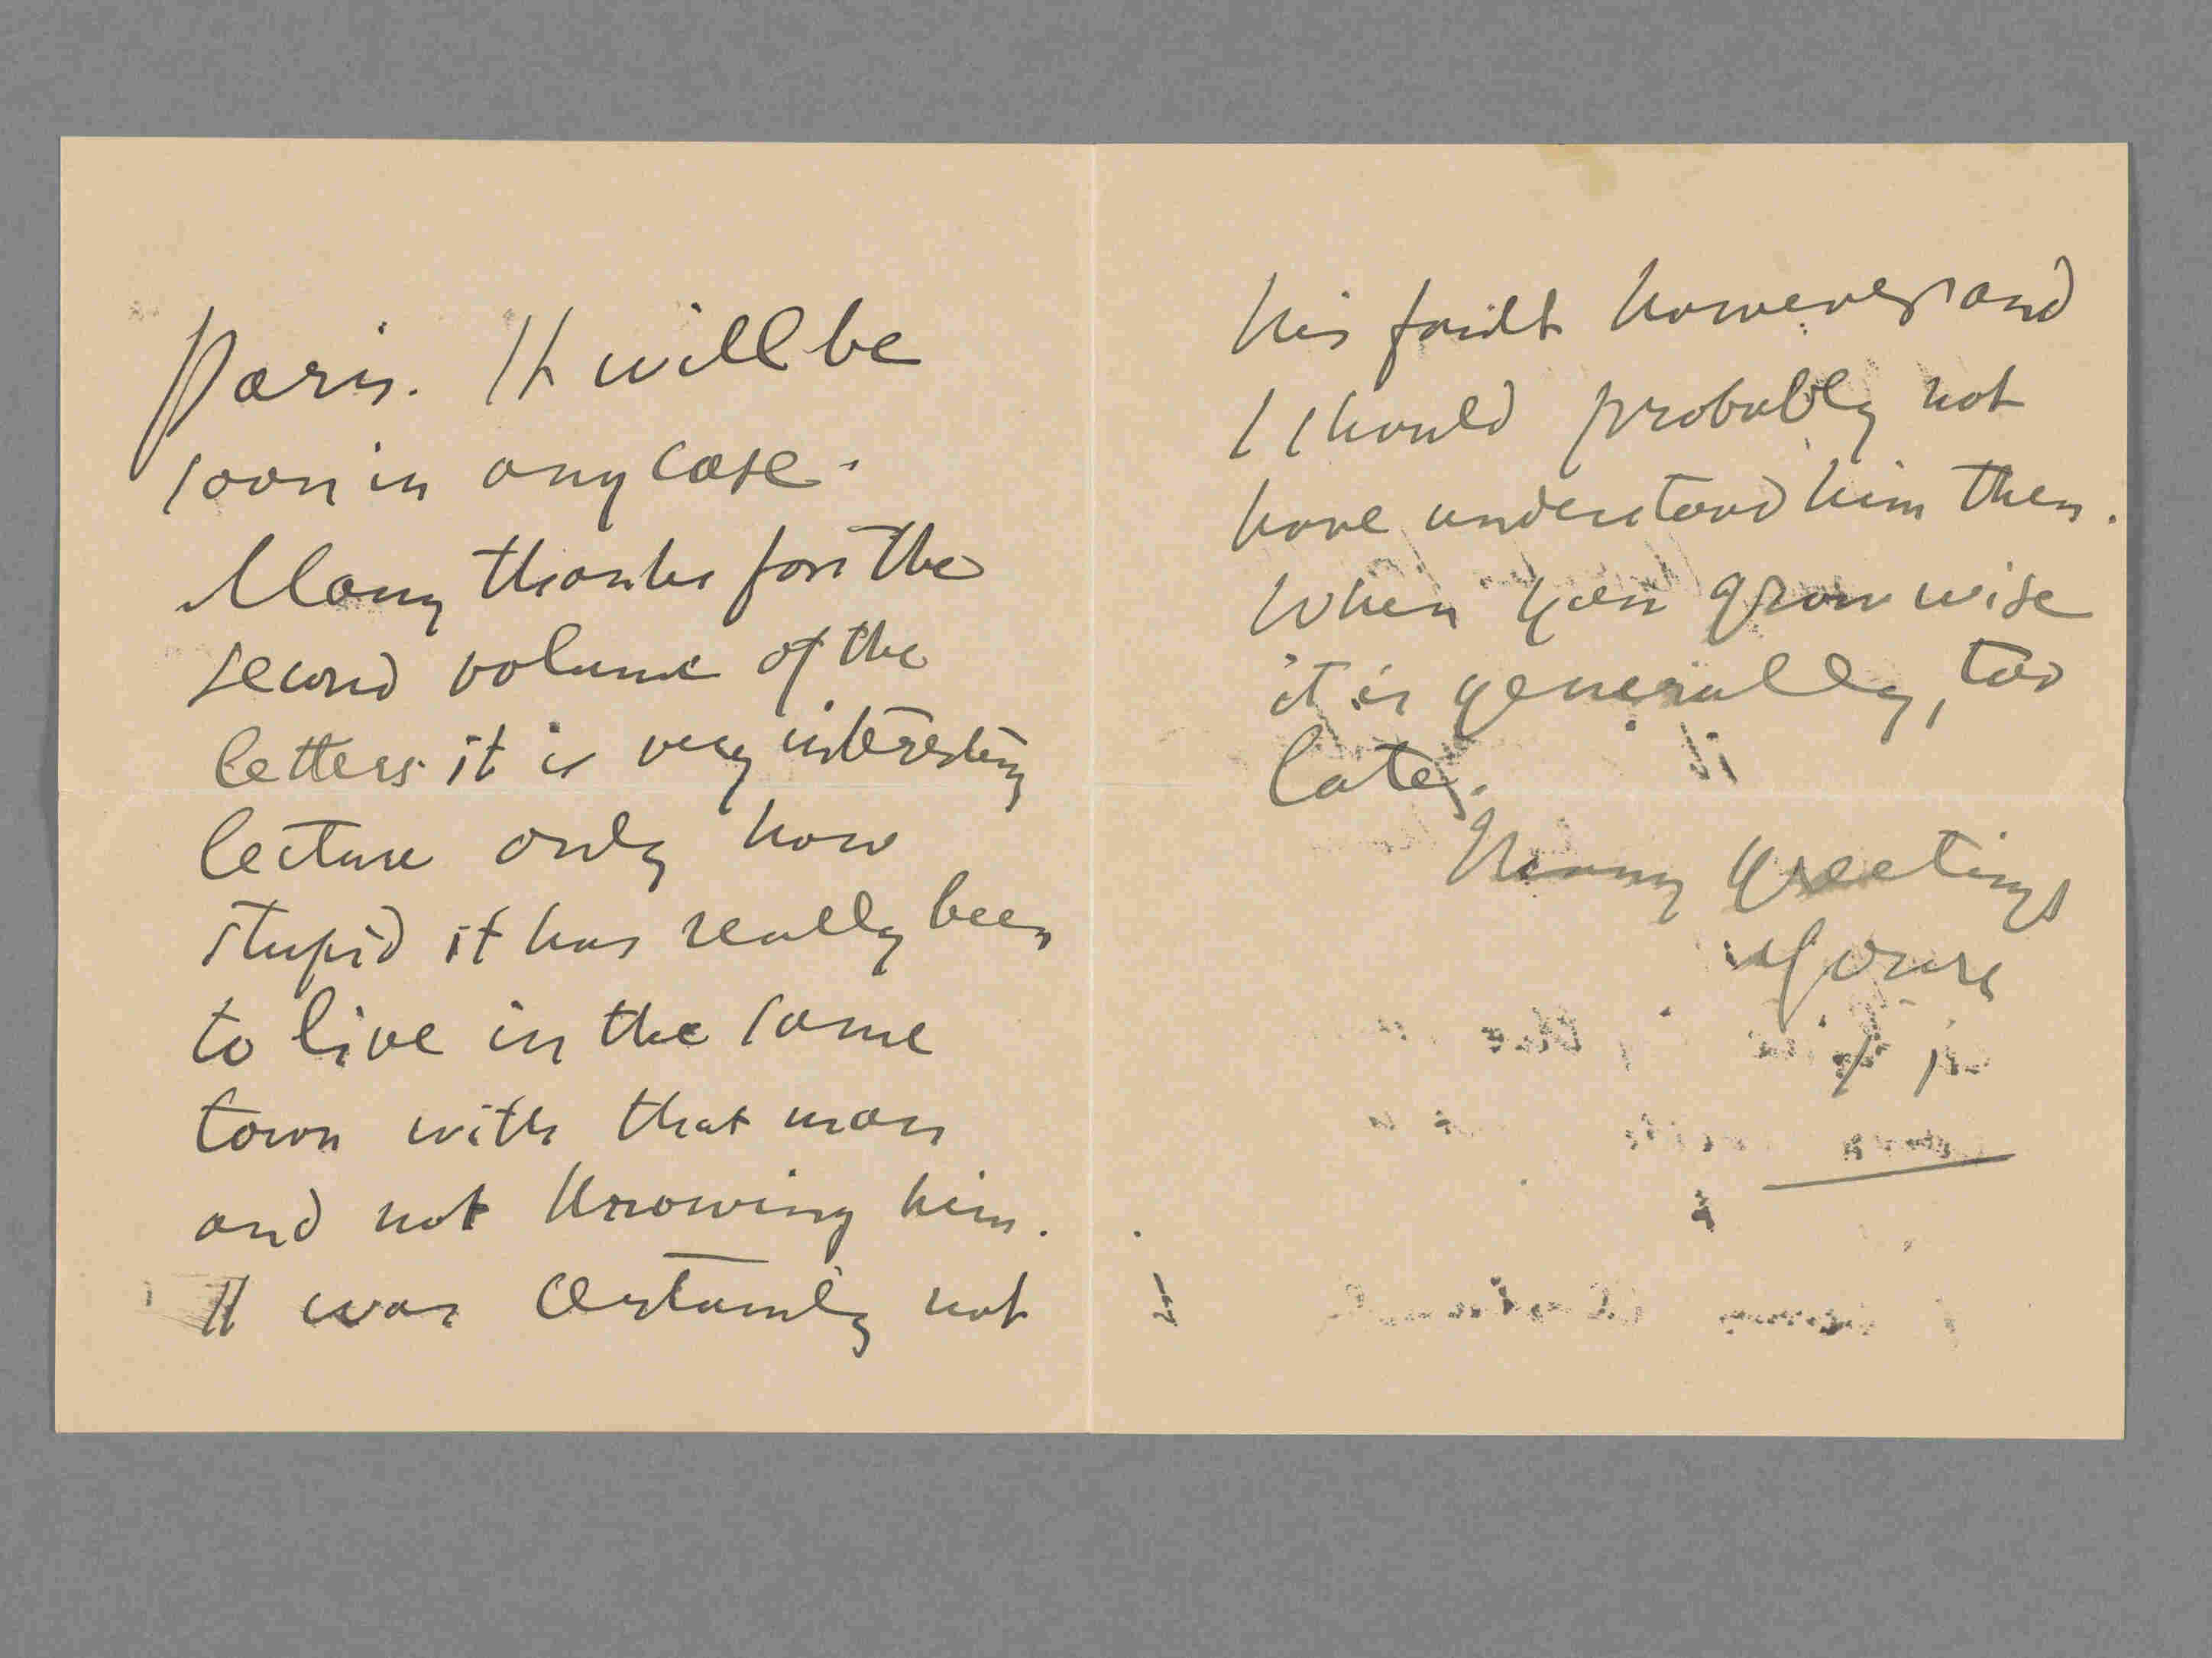 Paris. It will be
soon in any case.
Many thanks for the
second volume of the
letters it is very interesting
lecture only how
stupid it has really been
to live in the same
town with that man
and not knowing him.
It was certainly not
his fault however and
I should probably not
have understood him then.
When you grow wise
it is generally, too
late.
Many greetings
Yours